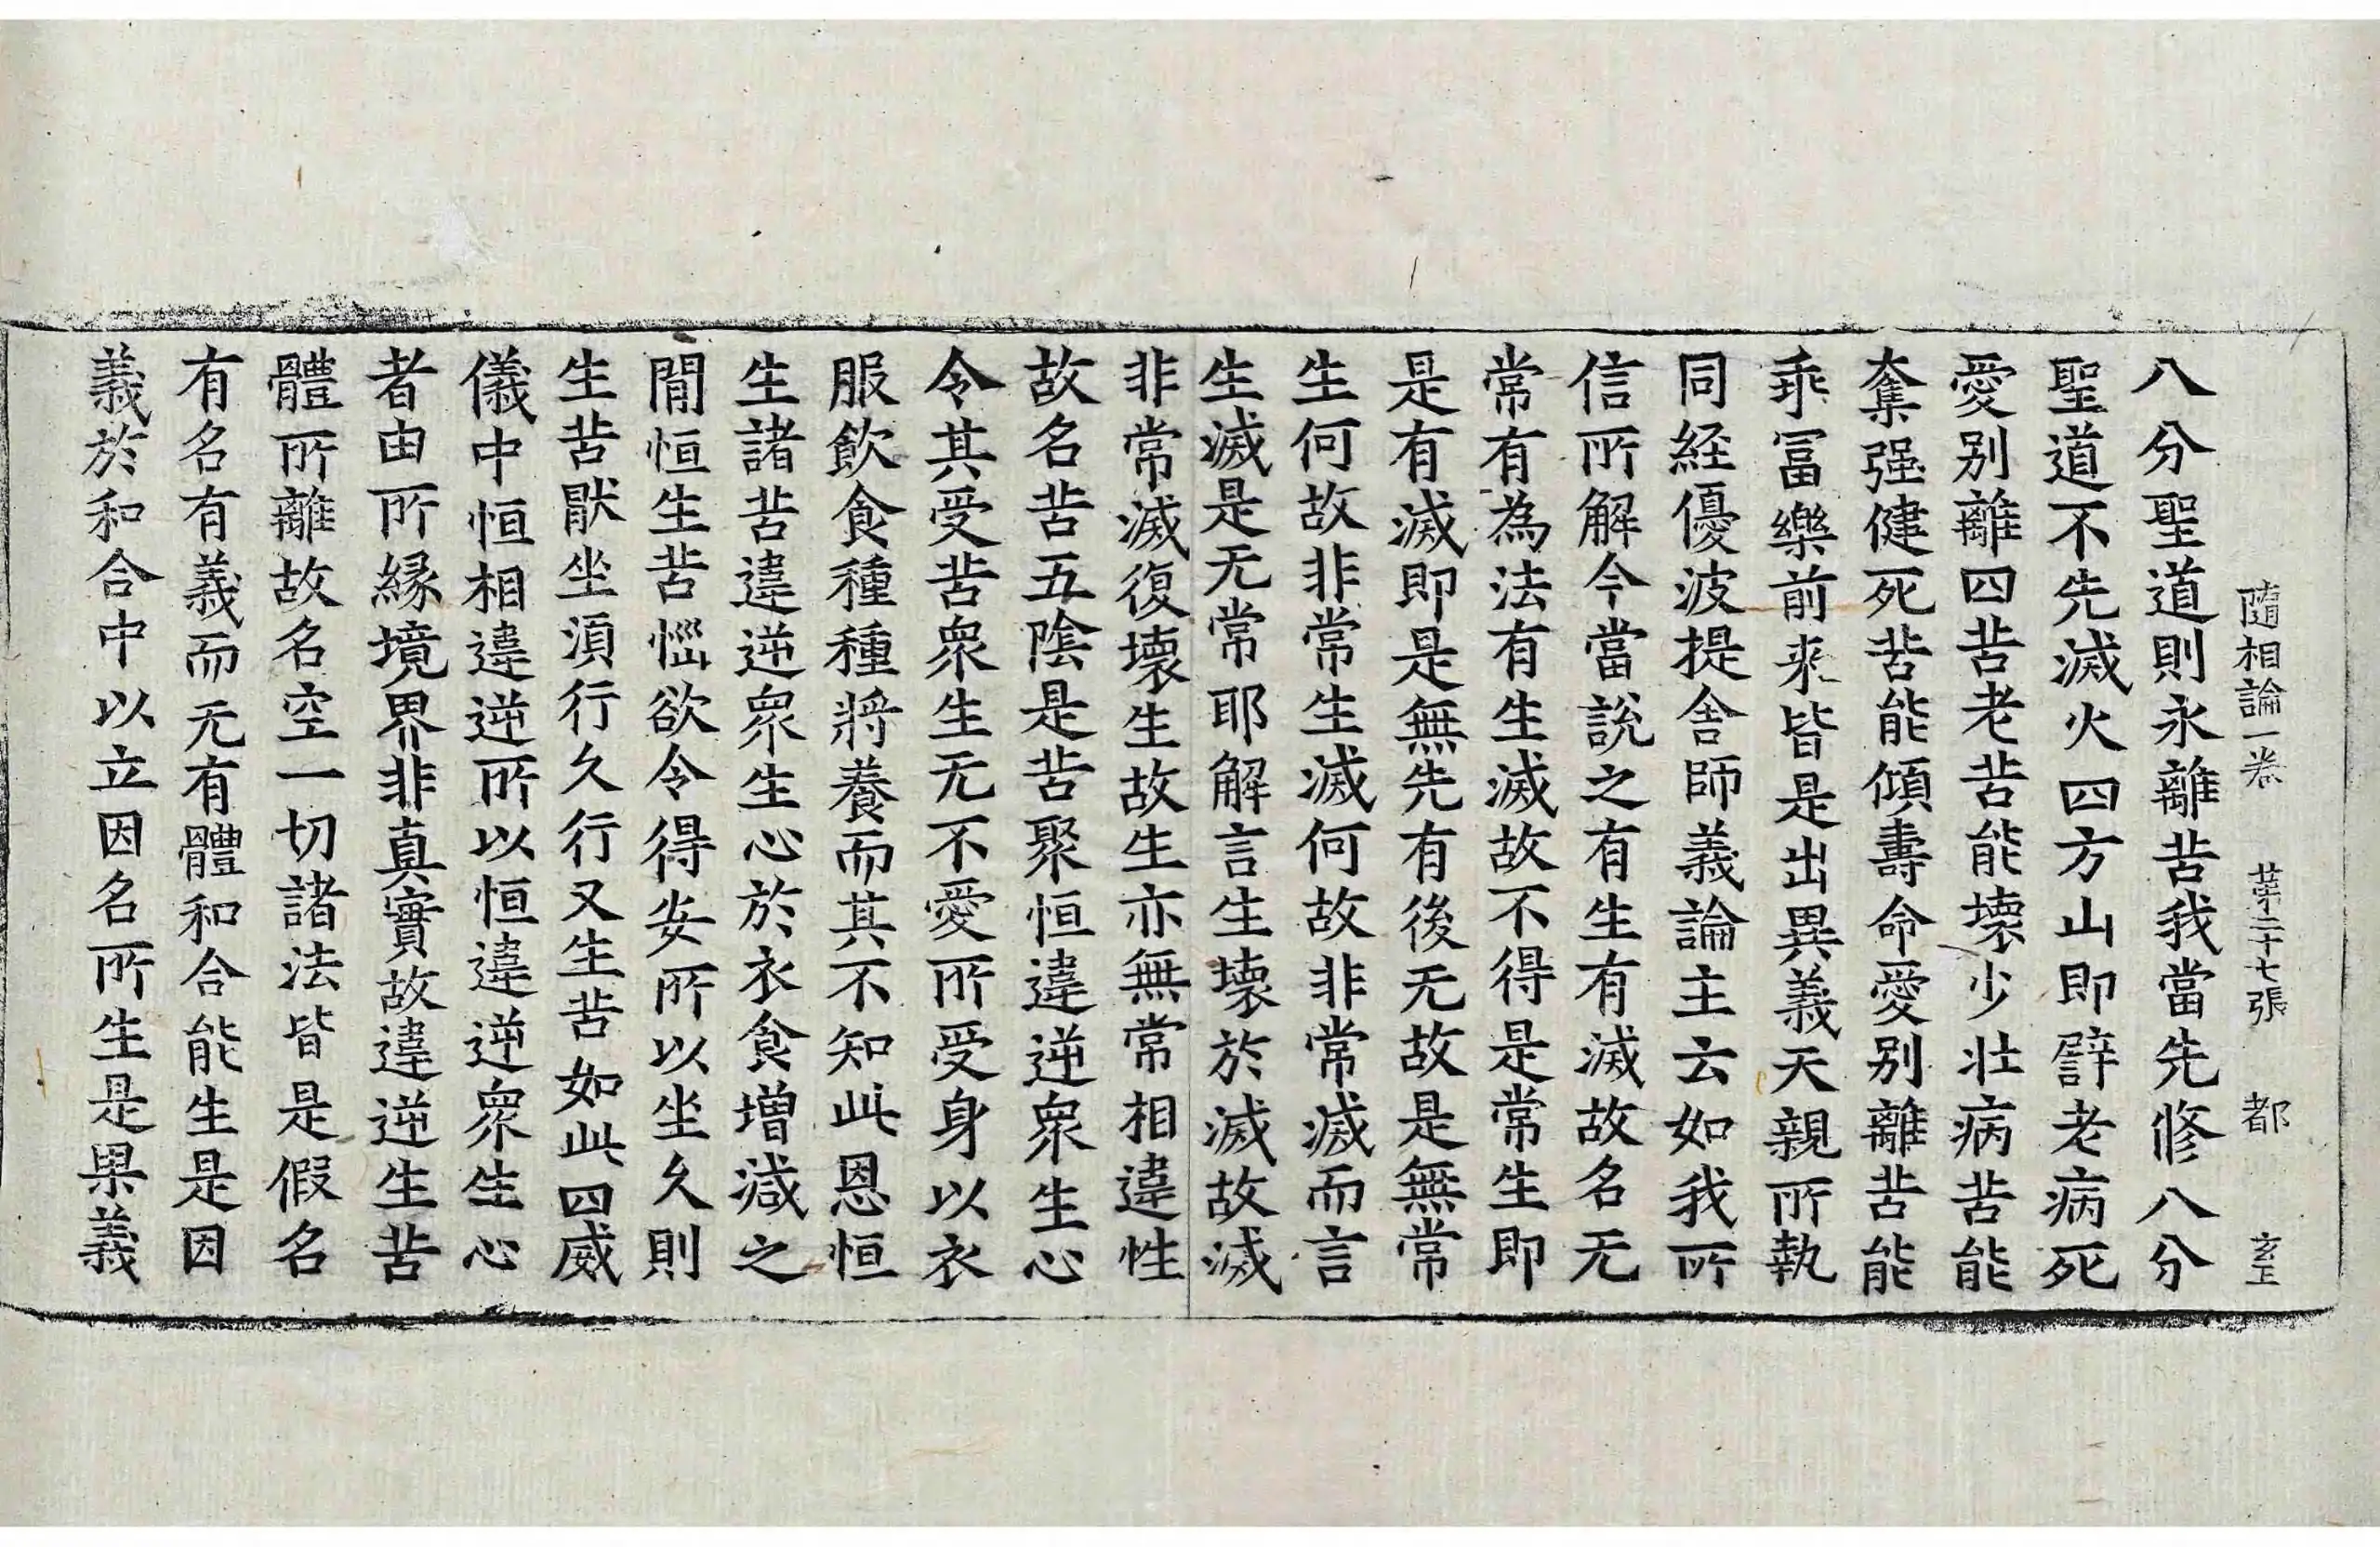 隨相論一卷 苐二十七張 都 玄
八分聖道則永離苦我當先修八分
聖道不先滅火四方山即譬老病死
愛别離四苦老苦能壞少壯病苦能
奪强健死苦能傾壽命愛别離苦能
乖冨樂前来皆是出異義天親所執
同経優波提舍師義論主云如我所
信所解今當說之有生有滅故名无
常有為法有生滅故不得是常生即
是有滅即是無先有後无故是無常
生何故非常生滅何故非常滅而言
生滅是无常耶解言生壞於滅故滅
非常滅復壞生故生亦無常相違性
故名苦五陰是苦聚恒違逆衆生心
令其受苦衆生无不愛所受身以衣
服飲食種種將養而其不知此恩恒
生諸苦違逆衆生心於衣食增減之
閒恒生苦惱欲令得安所以坐久則
生苦猒坐湏行久行又生苦如此四威
儀中恒相違逆所以恒違逆衆生心
者由所縁境界非真實故違逆生苦
體所離故名空一切諸法皆是假名
有名有義而无有體和合能生是因
義於和合中以立因名所生是果義